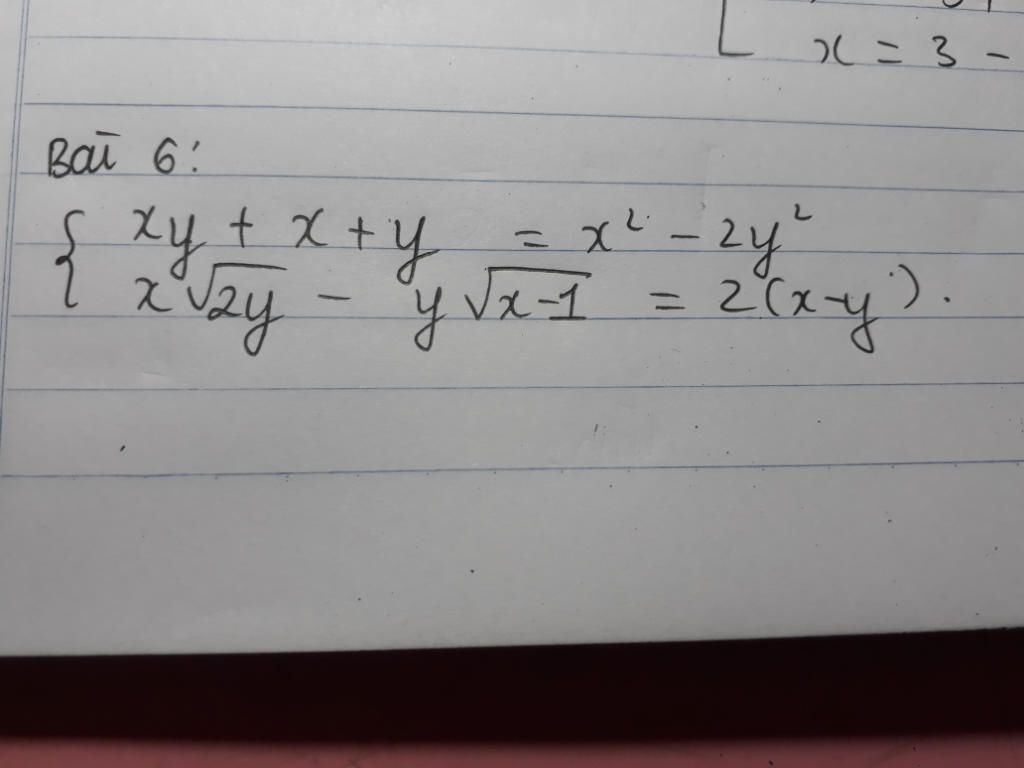 x = 3 -
Bài 6:
{ xy + x + y = x² - 2y²
x√2y - y√x-1 = 2(x-y).